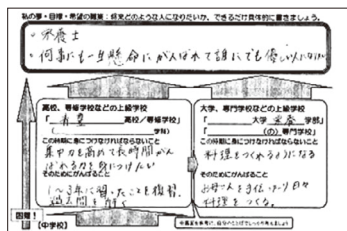 私の夢・目標・希望の職業：将来どのような人になりたいか、できるだけ具体的に書きましょう。
・栄養士
・何事にも一生懸命にがんばれて誰にでも優しい人になりたい
高校、専修学校などの上級学校
「 希望 高校／専修学校」
（ 学科）
この時期に身につけなければならないこと
集中力を高めて長時間が
んばれる力を身につけたい
そのためにがんばること
1〜3年に習ったことを復習
過去問を解く
大学、専門学校などの上級学校
「 大学 栄養 学部」
「 （の）専門学校」
この時期に身につけなければならないこと
料理をつくれるようになる
そのためにがんばること
お母さんを手伝ったり日々
料理をつくる。
【中学校】